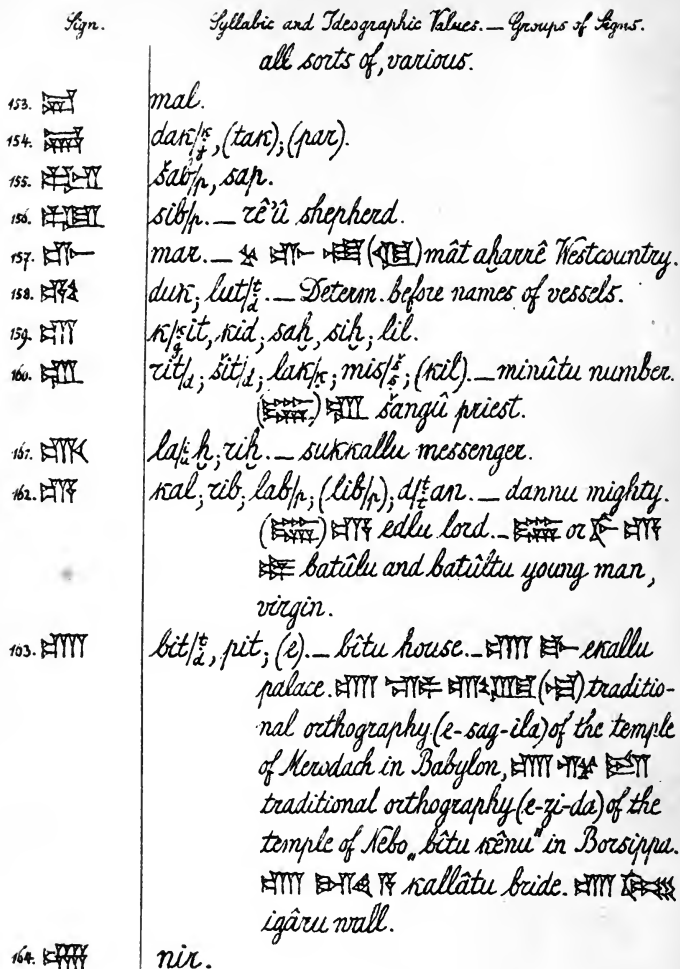 Sign. Syllabic and Ideographic Values. — Groups of Signs.
all sorts of, various.
153. 𒂷 mal.
154. dak/ḳ/g, (tak); (par).
155. šab/p, sap.
156. sib/p. — rê'û shepherd.
157. 𒈥 mar. — 𒈥 mât aḫarrê Westcountry.
158. 𒂁 duk; lut/ṭ/d. — Determ. before names of vessels.
159. 𒆤 k/ḳ/git, kid; saḫ, siḫ; lil.
160. 𒋃 rit/d; šit/d; lak/ḳ; mis/š/s; (kil). — minûtu number.
𒋃 šangû priest.
161. 𒈛 la/i/uḫ; riḫ. — sukkallu messenger.
162. 𒆗 kal; rib; lab/p; (lib/p); d/t/ṭan. — dannu mighty.
𒆗 edlu lord. — or 𒆗
batûlu and batûltu young man,
virgin.
103. 𒂍 bit/ṭ/d, pit; (e). — bîtu house. — 𒂍 𒃲 ekallu
palace. 𒂍 𒊕 𒅍 traditio-
nal orthography (e-sag-ila) of the temple
of Merodach in Babylon, 𒂍 𒍣 𒁕
traditional orthography (e-zi-da) of the
temple of Nebo „bîtu kênu“ in Borsippa.
𒂍 𒄀 𒀀 kallâtu bride. 𒂍
igâru wall.
164. 𒎏 nir.